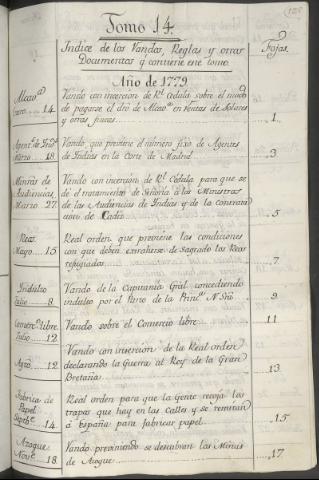 Tomo 14.
Indice de los Vandos, Reglas, y otros
Documentos q contiene este tomo.
Fojas.
Año de 1779.
Alcav.ª
14.
Vando con incercion de Rl Cedula sobre el modo
de pagarse el dro de Alcav.ª en Ventas de Solares
y otras fincas
1.
Marzo 18.
Vando, que previene el numero fixo de Agentes
de Indias en la Corte de Madrid
3
Audiencias,
Marzo 27.
Vando con incercion de Rl Cedula para que se
dé el tratamiento de Señoria á los Ministros
de las Audiencias de Indias y de la contrata
cion de Cadiz
5
Reos.
Mayo 15
Real orden que previene las condiciones
con que deben extraherse de Sagrado los Reos
refugiados
7
Indulto
8.
Vando de la Capitania Gral concediendo
indulto por el Parto de la Prin.ª N. Srã
9
Libre.
Julio 12.
Vando sobre el Comercio libre
11
Agto 12.
Vando con incercion de la Real orden
declarando la Guerra al Rey de la Gran
Bretaña
13.
Fabrica de
Papel
14.
Real orden para que la Gente recoja los
trapos que hay en las Calles y se remitan
á España para fabricar papel
15
Azogue
18.
Vando previniendo se descubran las Minas
de Azogue
17